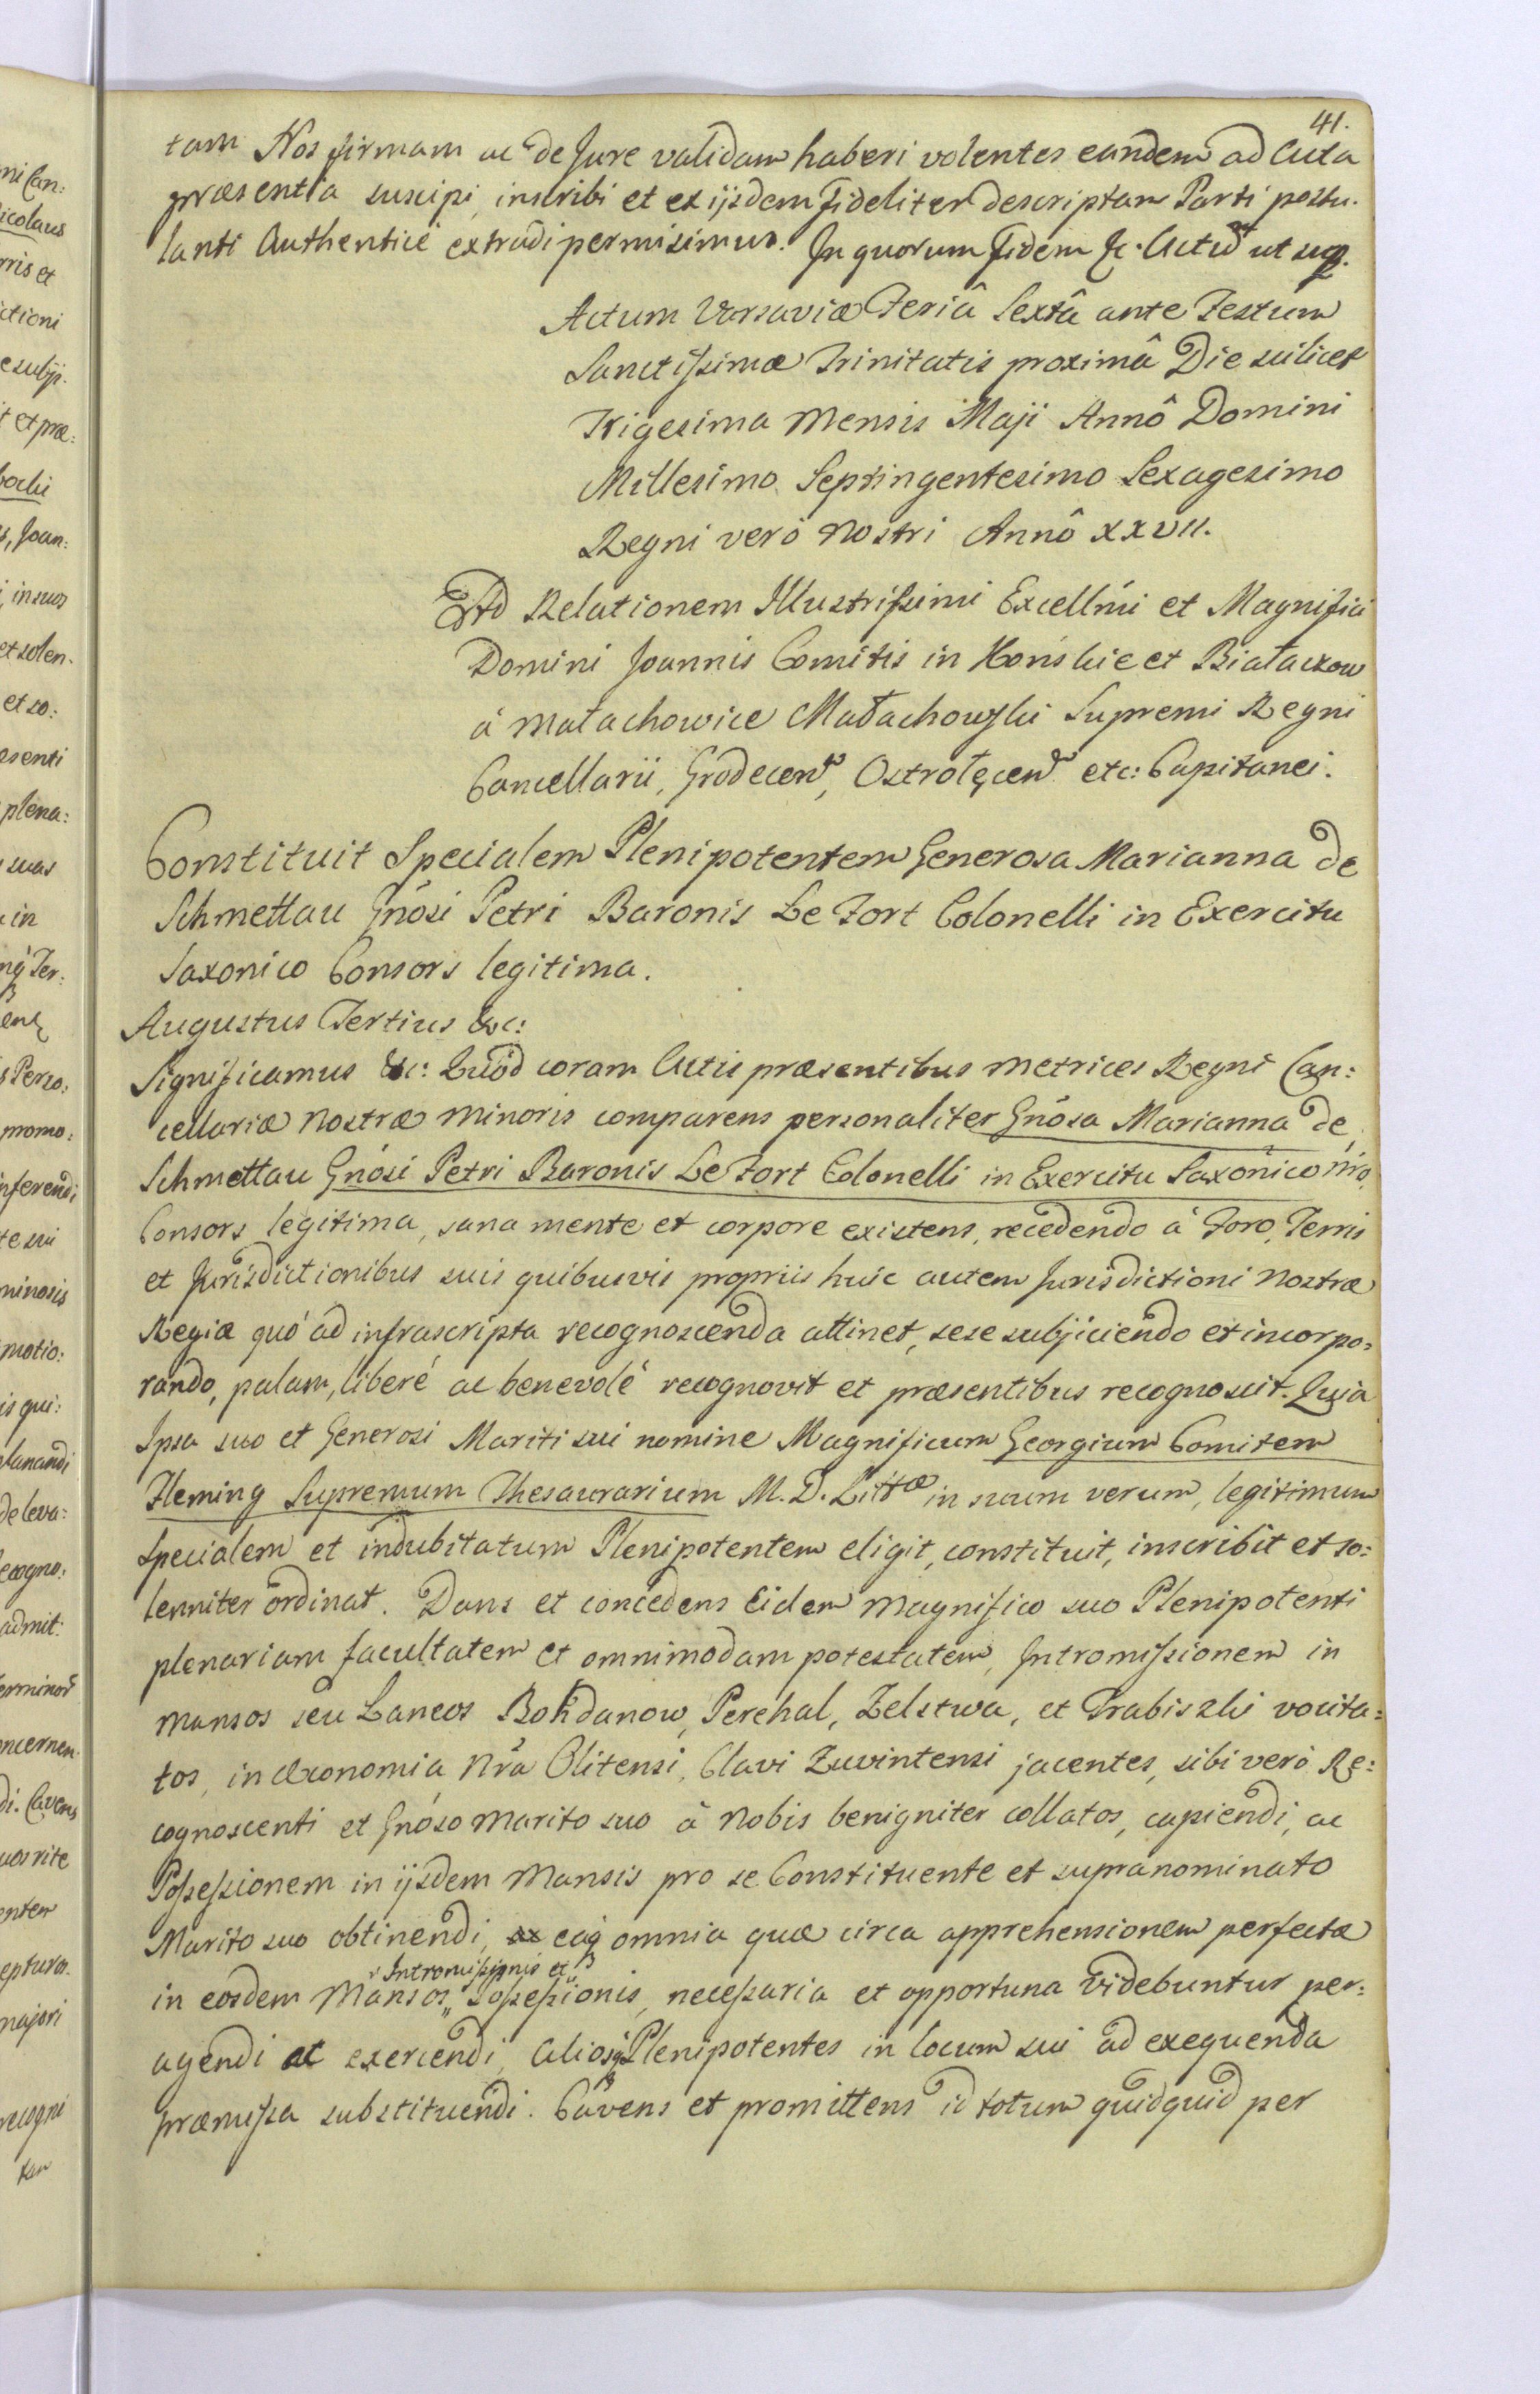 41.
tam Nos firmam ac de Jure validam haberi volentes eandem ad Acta
præsentia suscipi, inscribi et ex ijsdem fideliter descriptam Parti postu-
lanti Authenticè extradi permisimus. In quorum fidem &c. Actũ ut sup.
Actum Varsaviæ Feriâ Sextâ ante Festum
Sanctissimæ Trinitatis proximâ Die scilicet
Trigesima Mensis Maji Annô Domini
Millesimo Septingentesimo Sexagesimo
Regni verò Nostri Annô XXVII.
Ad Relationem Illustrissimi Excellm̃i et Magnifici
Domini Joannis Comitis in Końskie et Białaczow
à Małachowice Małachowski Supremi Regni
Cancellarii, Grodecen, Ostrołęcen etc: Capitanei.
Constituit Specialem Plenipotentem Generosa Marianna de
Schmettau Gnõsi Petri Baronis Le Fort Colonelli in Exercitu
Saxonico Consors legitima.
Augustus Tertius &c:
Significamus &c: Quòd coram Actis præsentibus Metrices Regni Can:
cellariæ Nostræ Minoris comparens personaliter Gnõsa Marianna de
Schmettau Gnõsi Petri Baronis Le Fort Colonelli in Exercitu Saxonico Nrõ
Consors legitima, sana mente et corpore existens, recedendo à Foro, Terris
et Jurisdictionibus suis quibusvis propriis huic autem Jurisdictioni Nostræ
Regiæ quò ad infrascripta recognoscenda attinet, sese subjiciendo et incorpo:
rando, palam, liberé ac benevolé recognovit et præsentibus recognoscit. Quia
Ipsa suo et Generosi Mariti sui nomine Magnificum Georgium Comitem
Fleming Supremum Thesaurarium M. D. Littæ in suum verum, legitimum
specialem et indubitatum Plenipotentem eligit, constituit, inscribit et so:
lenniter ordinat. Dans et concedens Eidem Magnifico suo Plenipotenti
plenariam facultatem et omnimodam potestatem, Intromissionem in
Mansos seu Laneos Bohdanow, Perehal, Zelstwa, et Trabiszki vocita:
tos, in Œconomia Nrã Olitensi, Clavi Zuvintensi jacentes, sibi verò Re:
cognoscenti et Gnõso Marito suo à Nobis benigniter collatos, capiendi, ac
Possessionem in ijsdem Mansis pro se Constituente et supranominato
Marito suo obtinendi, eaq omnia quæ circa apprehensionem perfectæ
Intromissionis et
in eosdem Mansos Possessionis, necessaria et opportuna videbuntur per:
agendi ac exercendi, Aliosq Plenipotentes in locum sui ad exequenda
præmissa substituendi. Cavens et promittens id totum quidquid per